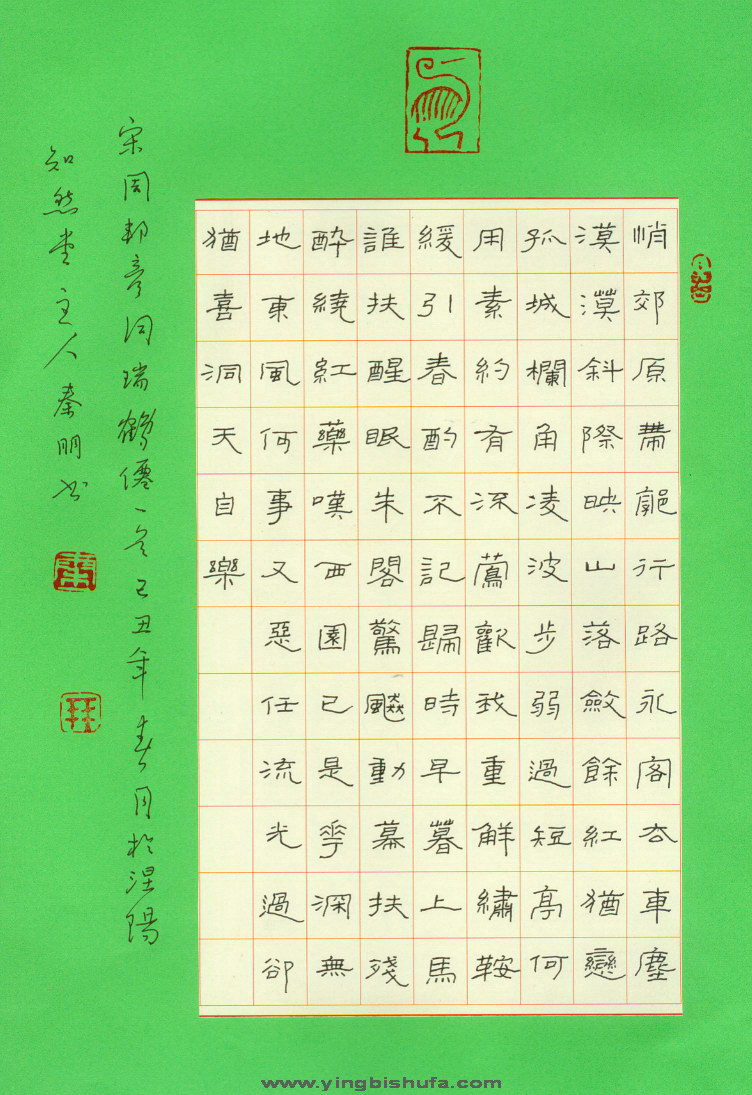 悄郊原帶郭行路永客去車塵
漠漠斜際映山落斂餘紅猶戀
孤城欄角凌波步弱過短亭何
用素約有深鶯歡我重解繡鞍
緩引春酌不記歸時早暮上馬
誰扶醒眠朱閣驚飈動幕扶殘
醉繞紅藥嘆西園已是華深無
地東風何事又惡任流光過卻
猶喜洞天自樂
宋周邦彥詞瑞鶴僊一首己丑年春月於涅陽
知然堂主人秦明书
www.yingbishufa.com